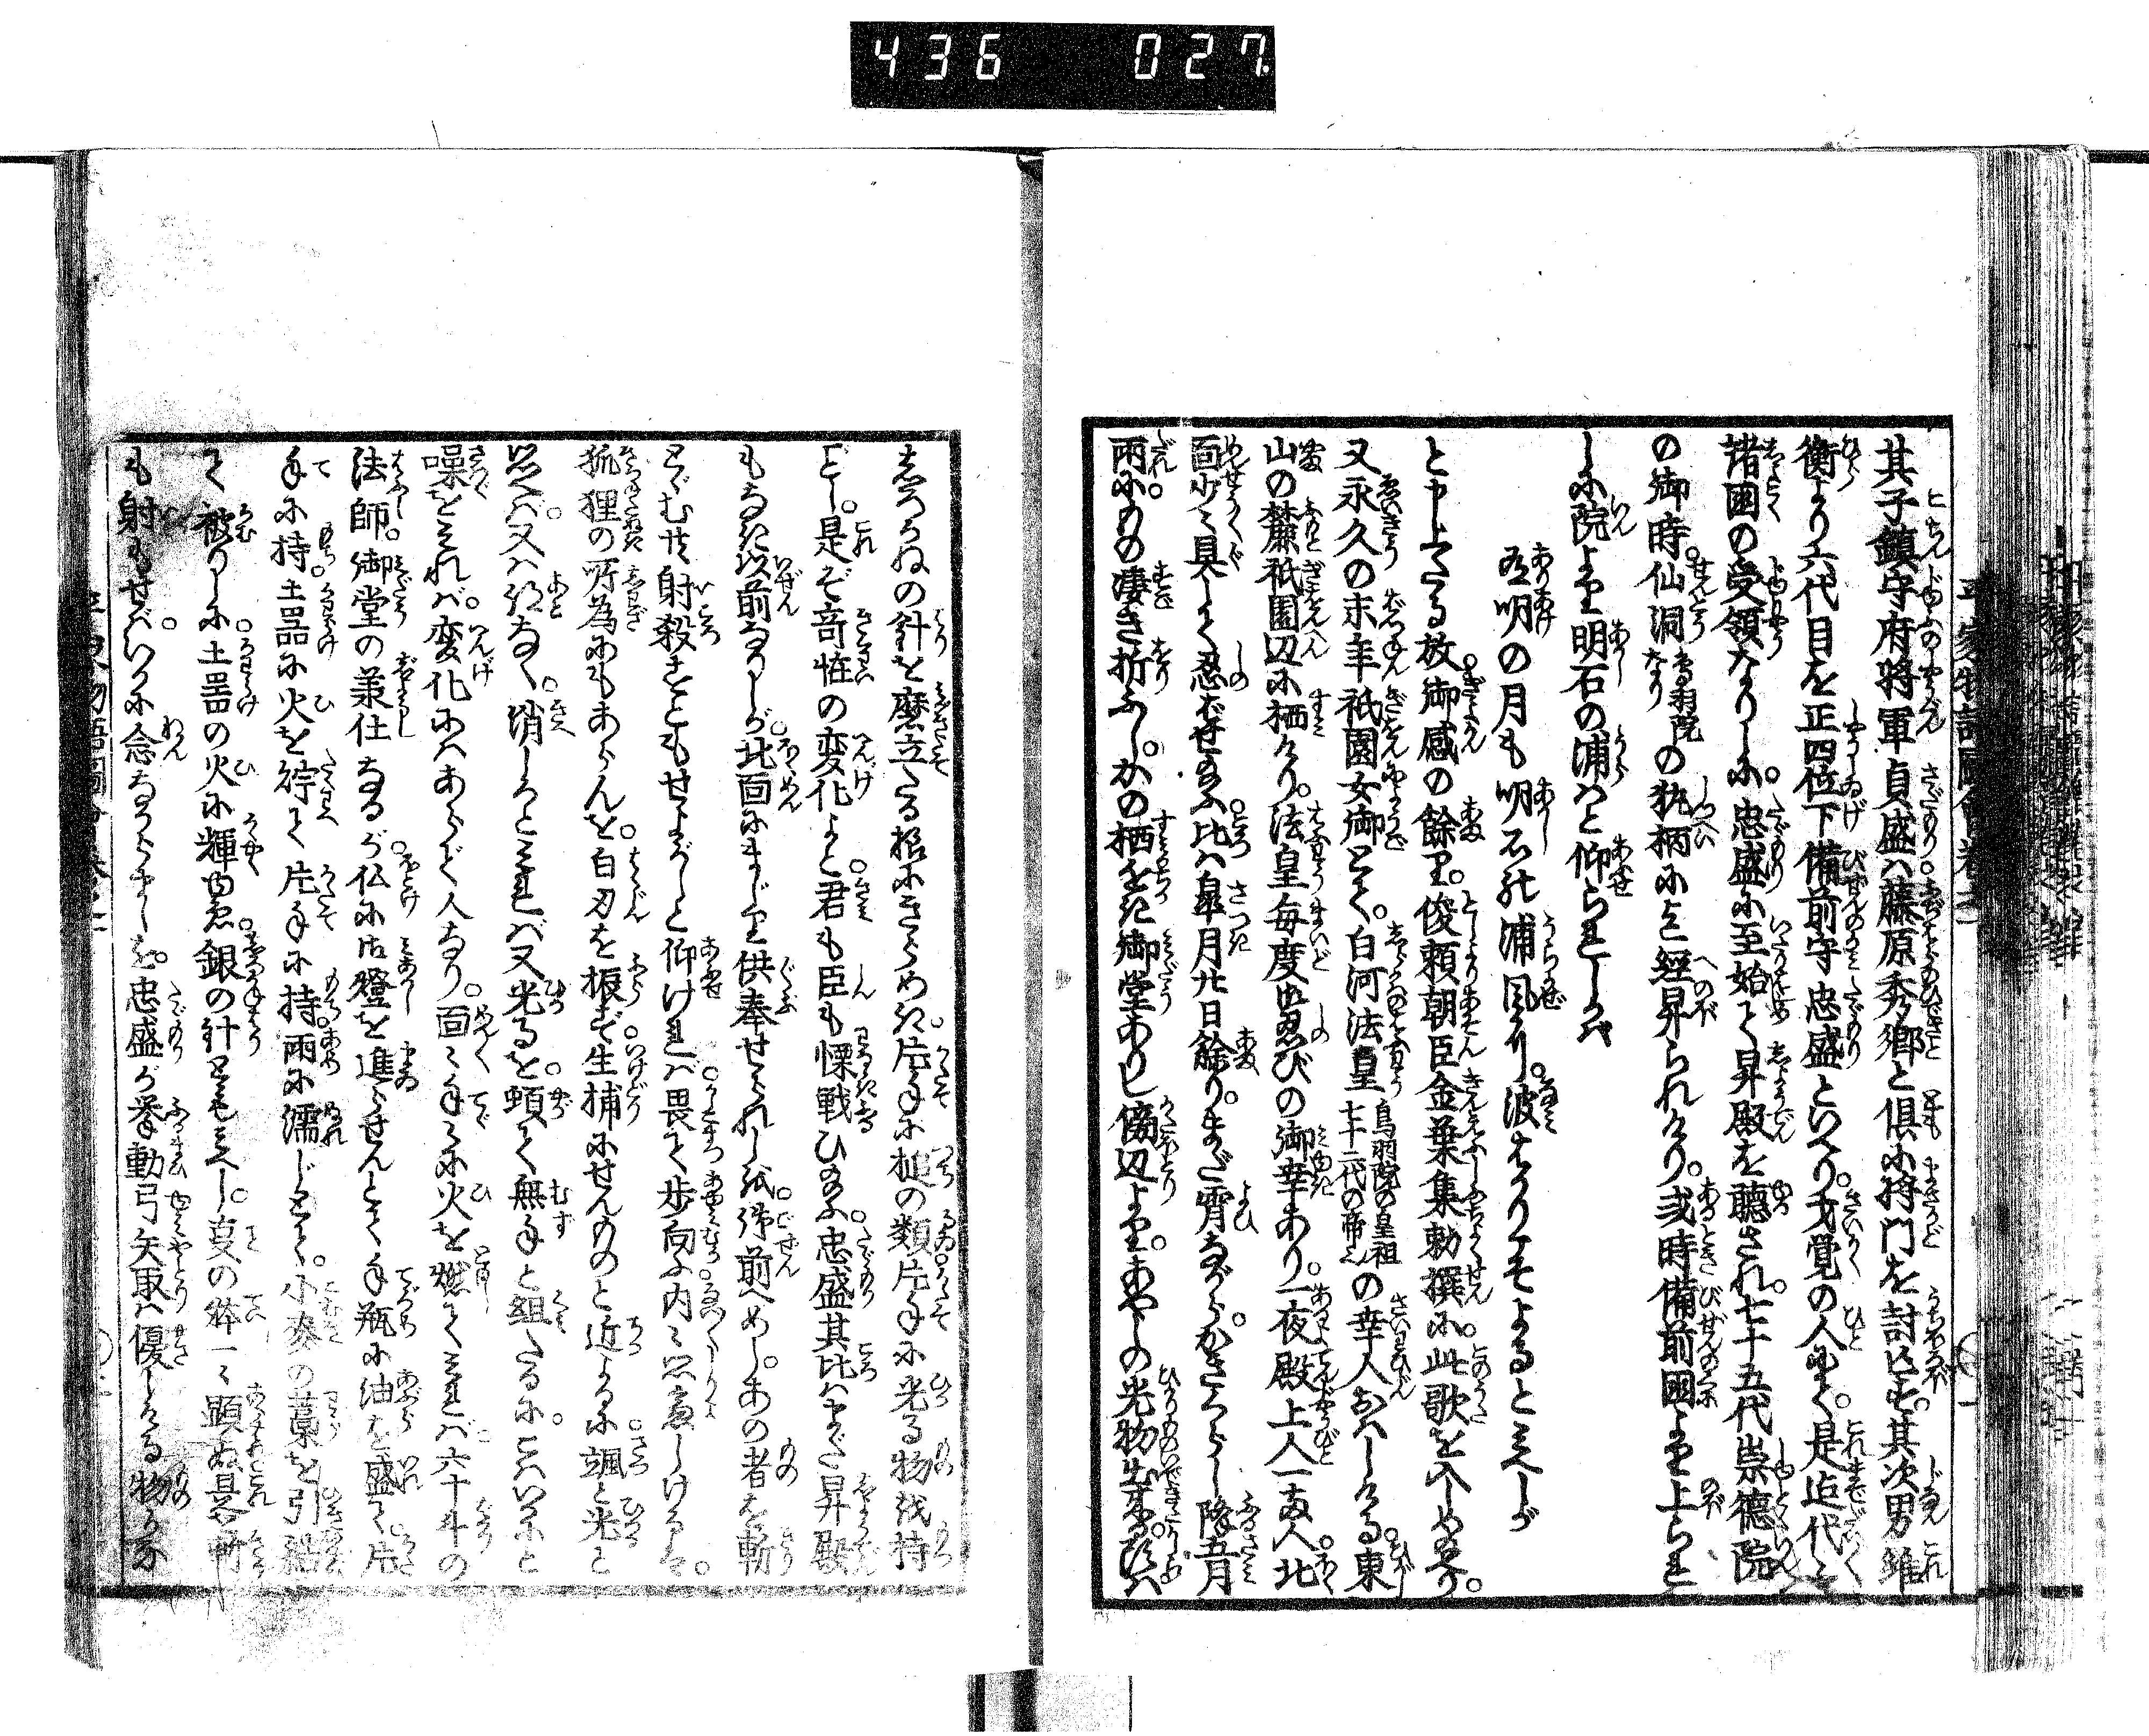 436 027.
其子鎮守府将軍貞盛ハ藤原秀郷と倶に将門を討亡せり。其次男維
衡より六代目を正四位下備前守忠盛といへり。才覚の人にて。是迄代々
諸国の受領なりしに。忠盛に至始て昇殿を聴され。七十五代崇徳院
の御時。仙洞鳥羽院の執柄にも経昇られけり。或時備前国より上られ
しに院より明石の浦ハと仰られしかバ
有明の月も明石の浦風に。波ばかりこそよるとみえしが
と申上たる故御感の餘り。俊頼朝臣金葉集勅撰に。此歌を入しめ給ふ。
又永久の末年祇園女御とて。白河法皇鳥羽院の皇祖七十二代の帝也の幸人おハしける。東
山の麓祇園辺に栖けり。法皇毎度忍びの御幸あり。一夜殿上人一両人。北
面少々具して忍ばせ給ふ。比ハ皐月廿日餘り。まだ宵ながら。かきくらし降五月
雨に。もの凄き折ふし。かの栖ちかき御堂あり し傍辺より。あやしの光物出来
しろかねの針を磨立たる様にきらめき。片手に槌の類片手に光る物を持
どし。是ぞ奇恠の変化よと。君も臣も慄戦ひ給ふ。忠盛其比ハまだ昇殿
もなき以前なりしが。北面にまじり供奉せられしを。御前へめし。あの者を斬
とゞむか射殺すともせよかしと仰けれバ。畏て歩向ふ内々思慮しけるハ。
狐狸の所為にもあらんを。白刃を振ず。生捕にせんものと近よるに颯と光と
思へバ。又ハ跡なく。消しかとみれバ又光るを。頓て無手と組たるに。こハいかにと
噪をみれバ。変化にハあらで人なり。面々手に手に火を燃てみれバ六十斗の
法師。御堂の承仕なるが。仏に御燈を進らせんとて手瓶に油を盛て。片
手に持。土器に火を貯て片手に持。雨に濡じとて。小麦の藁を引結
て被りしに。土器の火に輝ゆゑ。銀の針とも見えし。事の体一々顕ぬ是斬
も射もせバいかに念なからまし。忠盛が挙動弓矢取ハ優しかる物かな